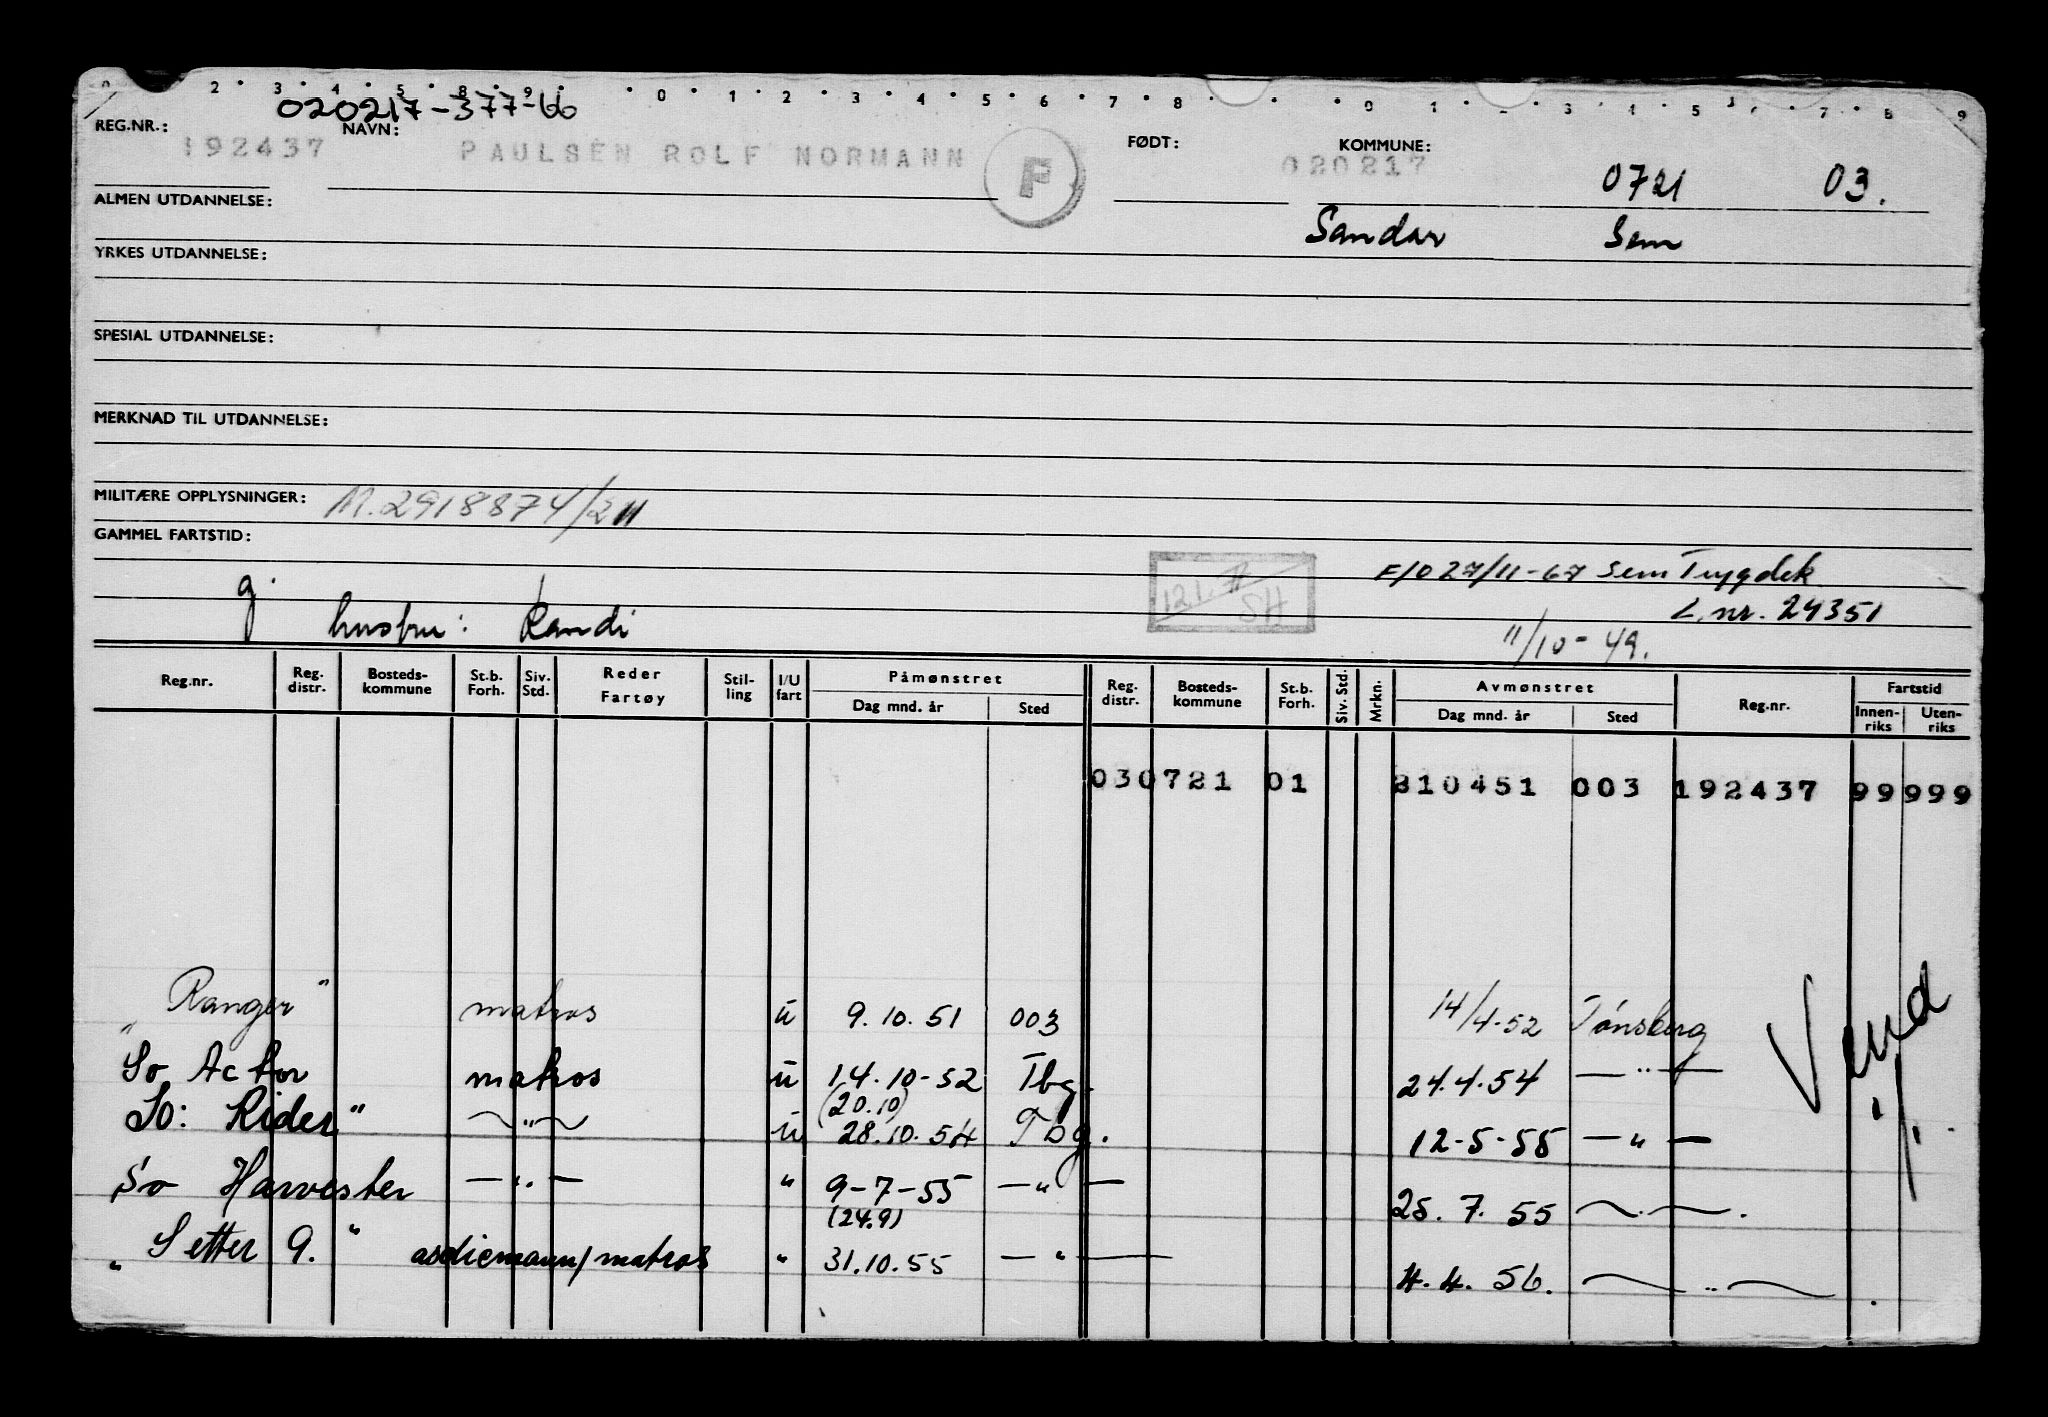 0 2 3 4 5 8 9 0 1 2 3 4 5 6 7 8 0 1 3 4 5 7 8 9
020217-377-66
REG.NR.: NAVN: FØDT: KOMMUNE:
192437 PAULSEN ROLF NORMANN F 020217 0721 03.
ALMEN UTDANNELSE: Sandar Sem
YRKES UTDANNELSE:
SPESIAL UTDANNELSE:
MERKNAD TIL UTDANNELSE:
MILITÆRE OPPLYSNINGER: M.2918874/211
GAMMEL FARTSTID:
g. 12.1.71 SH F/O 27/11-67 Sem Trygdek
husfru: Randi L.nr. 24351
11/10-49.
Reg.nr. Reg. distr. Bosteds- kommune St.b. Forh. Siv. Std. Reder Fartøy Stil- ling I/U fart Påmønstret Dag mnd. år Sted Reg. distr. Bosteds- kommune St.b. Forh. Siv. Std. Mrkn. Avmønstret Dag mnd. år Sted Reg.nr. Fartstid Innen- riks Uten- riks
03 0721 01 310451 003 192437 99 999
„Ranger" matros u 9.10.51 003 14/4-52 Tønsberg Vend
So Actor matros u 14.10-52 Tbg. 24.4.54 — " —
(20.10)
So: Rider" — " — u 28.10.54 Tbg. 12-5-55 — " —
So Harvester — " — " 9-7-55 — " — 25.7.55 — " —.
(24.9)
„Setter 9." asdicmann/matros " 31.10.55 — " — 4.4.56. — " —.